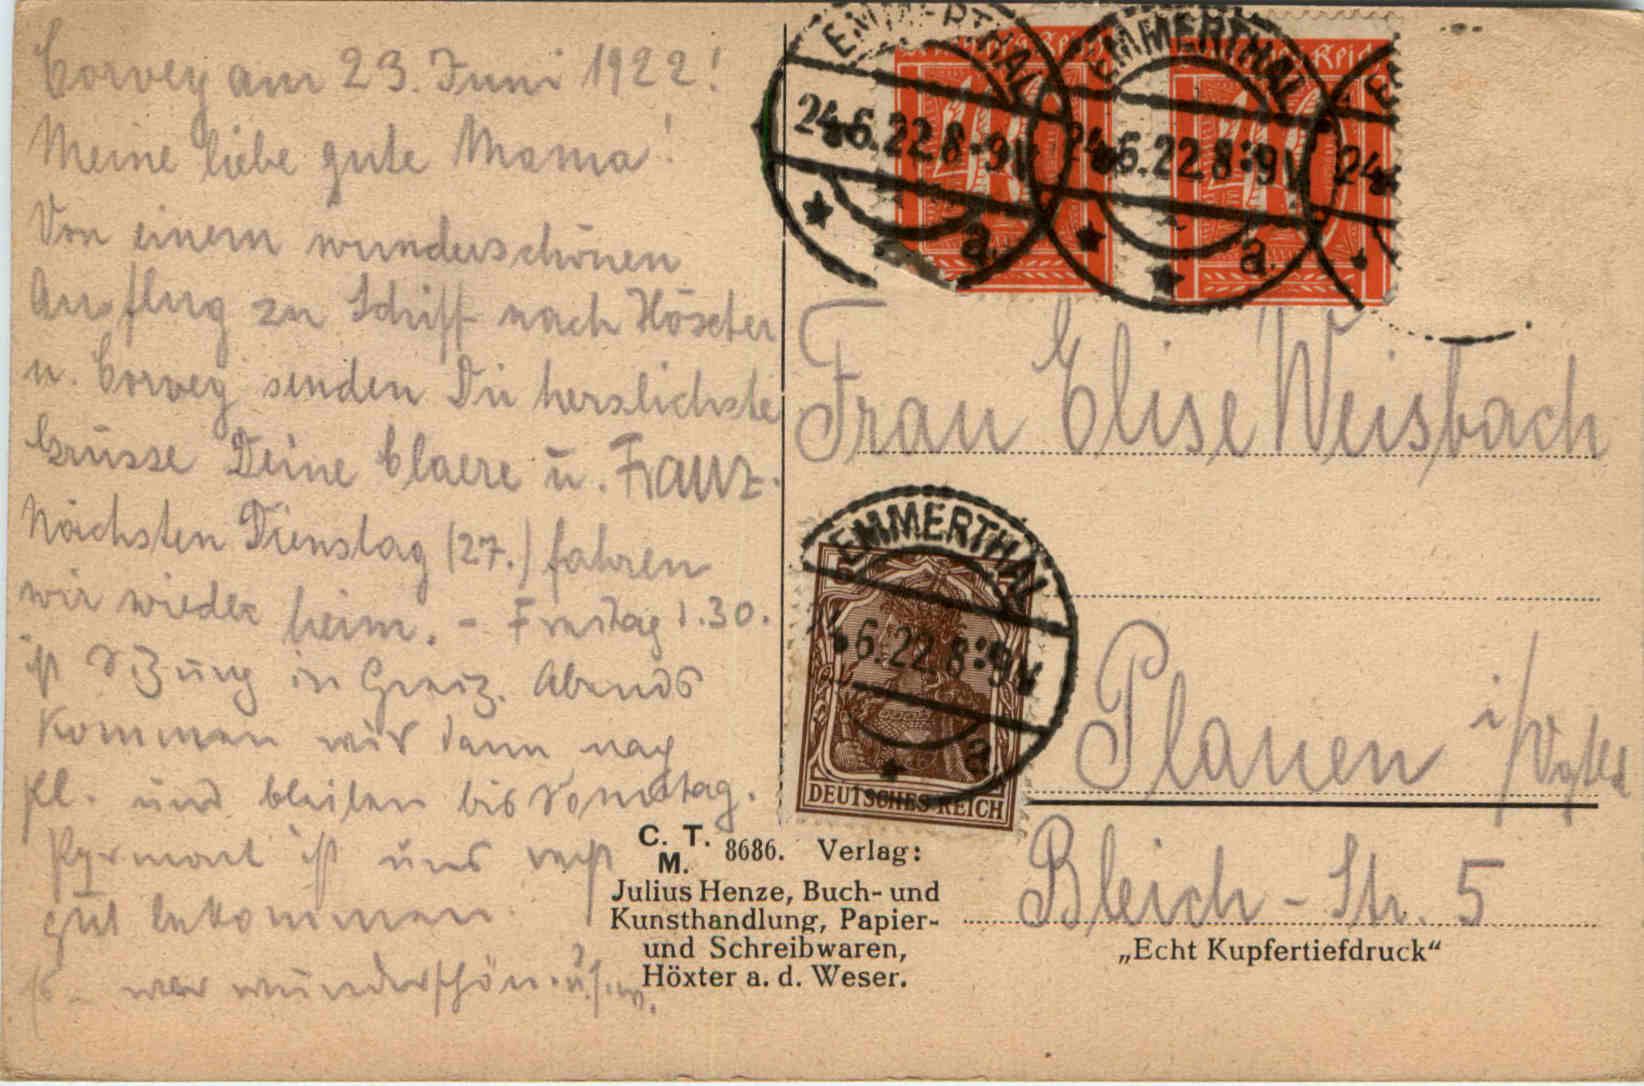 Corvey am 23. Juni 1922!
Meine liebe gute Mama!
Von einem wunderschönen
Ausflug zu Schiff nach Höxter
u. Corvey senden Dir herzlichste
Grüsse Deine Claere u. Franz.
Nächsten Dienstag (27.) fahren
wir wieder heim. - Freitag 1.30.
ist Sitzung in Greiz. Abends
kommen wir dann nach
Pl. und bleiben bis Sonntag.
Pyrmont ist uns recht
gut bekommen.
Es war wunderschön. u.s.w.
EMMERTHAL
24.6.22.8-9V
a.
EMMERTHAL
24.6.22.8-9V
a.
24.
Frau Elise Weisbach
EMMERTHAL
6.22.8-9V
a
DEUTSCHES REICH
Plauen i/Vgtld
Bleich-Str. 5
C. T. M. 8686. Verlag:
Julius Henze, Buch- und
Kunsthandlung, Papier-
und Schreibwaren,
Höxter a. d. Weser.
„Echt Kupfertiefdruck“